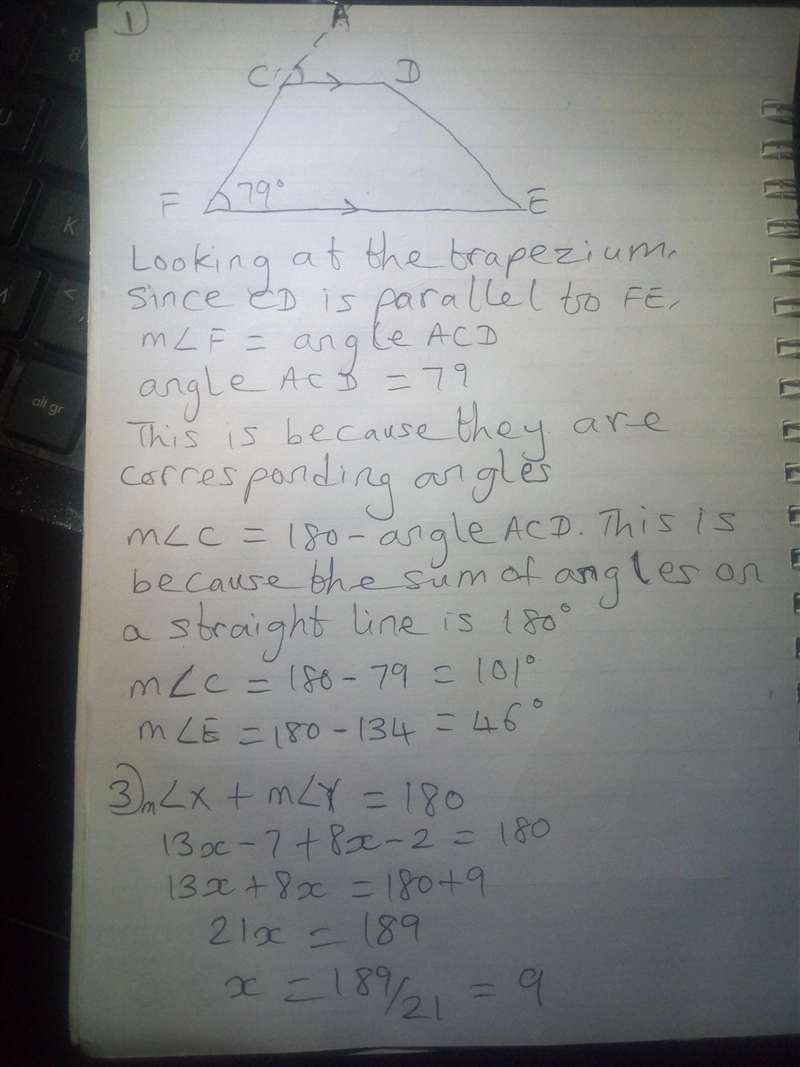 1)
A
C D
F 79° E
Looking at the trapezium,
Since CD is parallel to FE,
m∠F = angle ACD
angle ACD = 79
This is because they are
corresponding angles
m∠C = 180 - angle ACD. This is
because the sum of angles on
a straight line is 180°
m∠C = 180 - 79 = 101°
m∠E = 180 - 134 = 46°
3) m∠X + m∠Y = 180
13x - 7 + 8x - 2 = 180
13x + 8x = 180 + 9
21x = 189
x = 189/21 = 9
alt gr
K
<
8